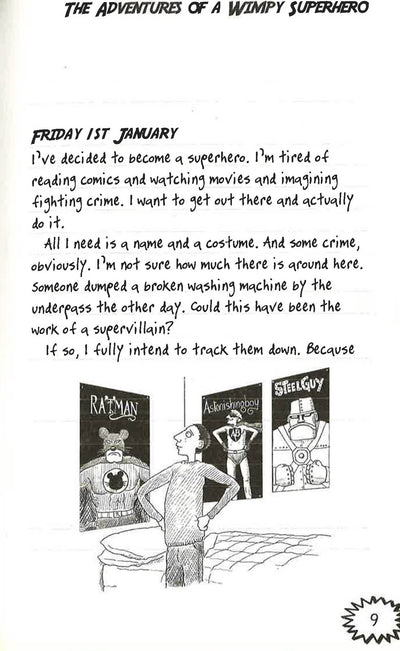 THE ADVENTURES OF A WIMPY SUPERHERO
FRIDAY 1ST JANUARY
I've decided to become a superhero. I'm tired of
reading comics and watching movies and imagining
fighting crime. I want to get out there and actually
do it.
All I need is a name and a costume. And some crime,
obviously. I'm not sure how much there is around here.
Someone dumped a broken washing machine by the
underpass the other day. Could this have been the
work of a supervillain?
If so, I fully intend to track them down. Because
RATMAN
Astonishingboy
AB
STEELGUY
9